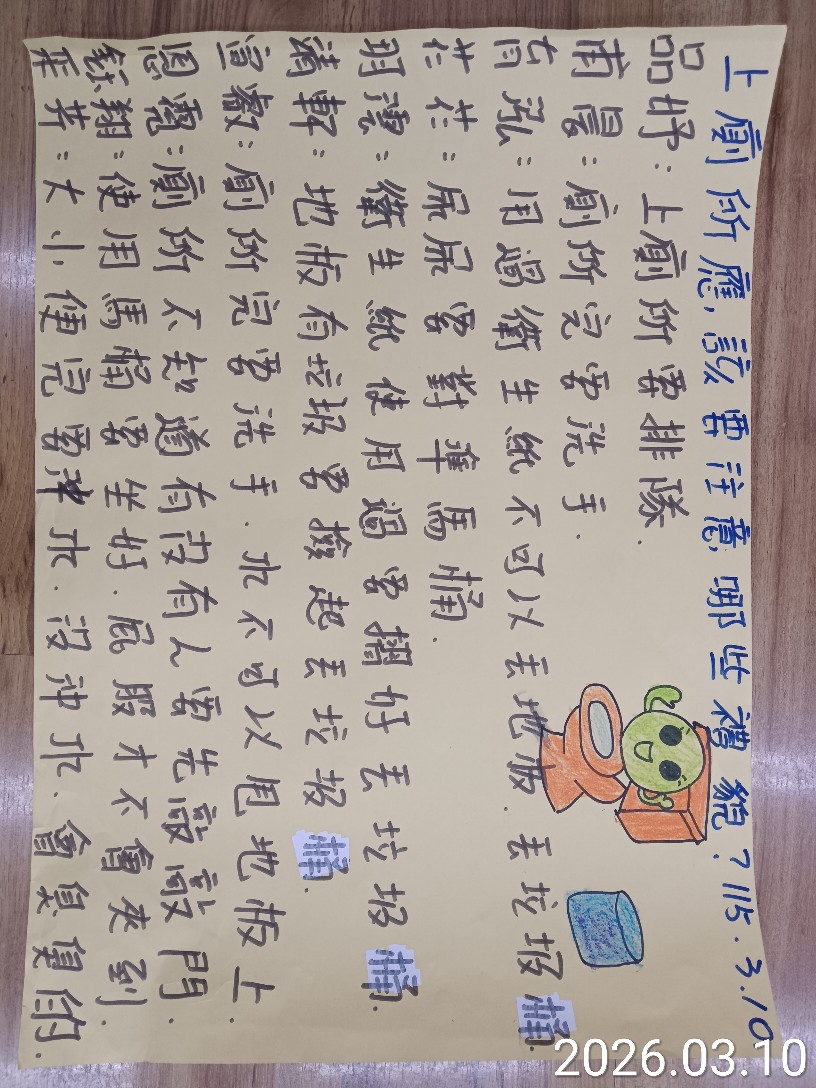 上廁所應該要注意哪些禮貌？115.3.10
品妤：上廁所要排隊.
甫晨：廁所完要洗手.
宥泓：用過衛生紙不可以丟地板.丟垃圾桶.
芢芢：尿尿要對準馬桶.
玥澐：衛生紙使用過要摺好丟垃圾桶.
清軒：地板有垃圾要撿起丟垃圾桶.
宣敹：廁所完要洗手.水不可以甩地板上.
恩霈：廁所不知道有沒有人要先敲敲門.
鈺翔：使用馬桶要坐好.屁股才不會夾到.
苹：大小便完要沖水.沒沖水、會臭臭的.
2026.03.10